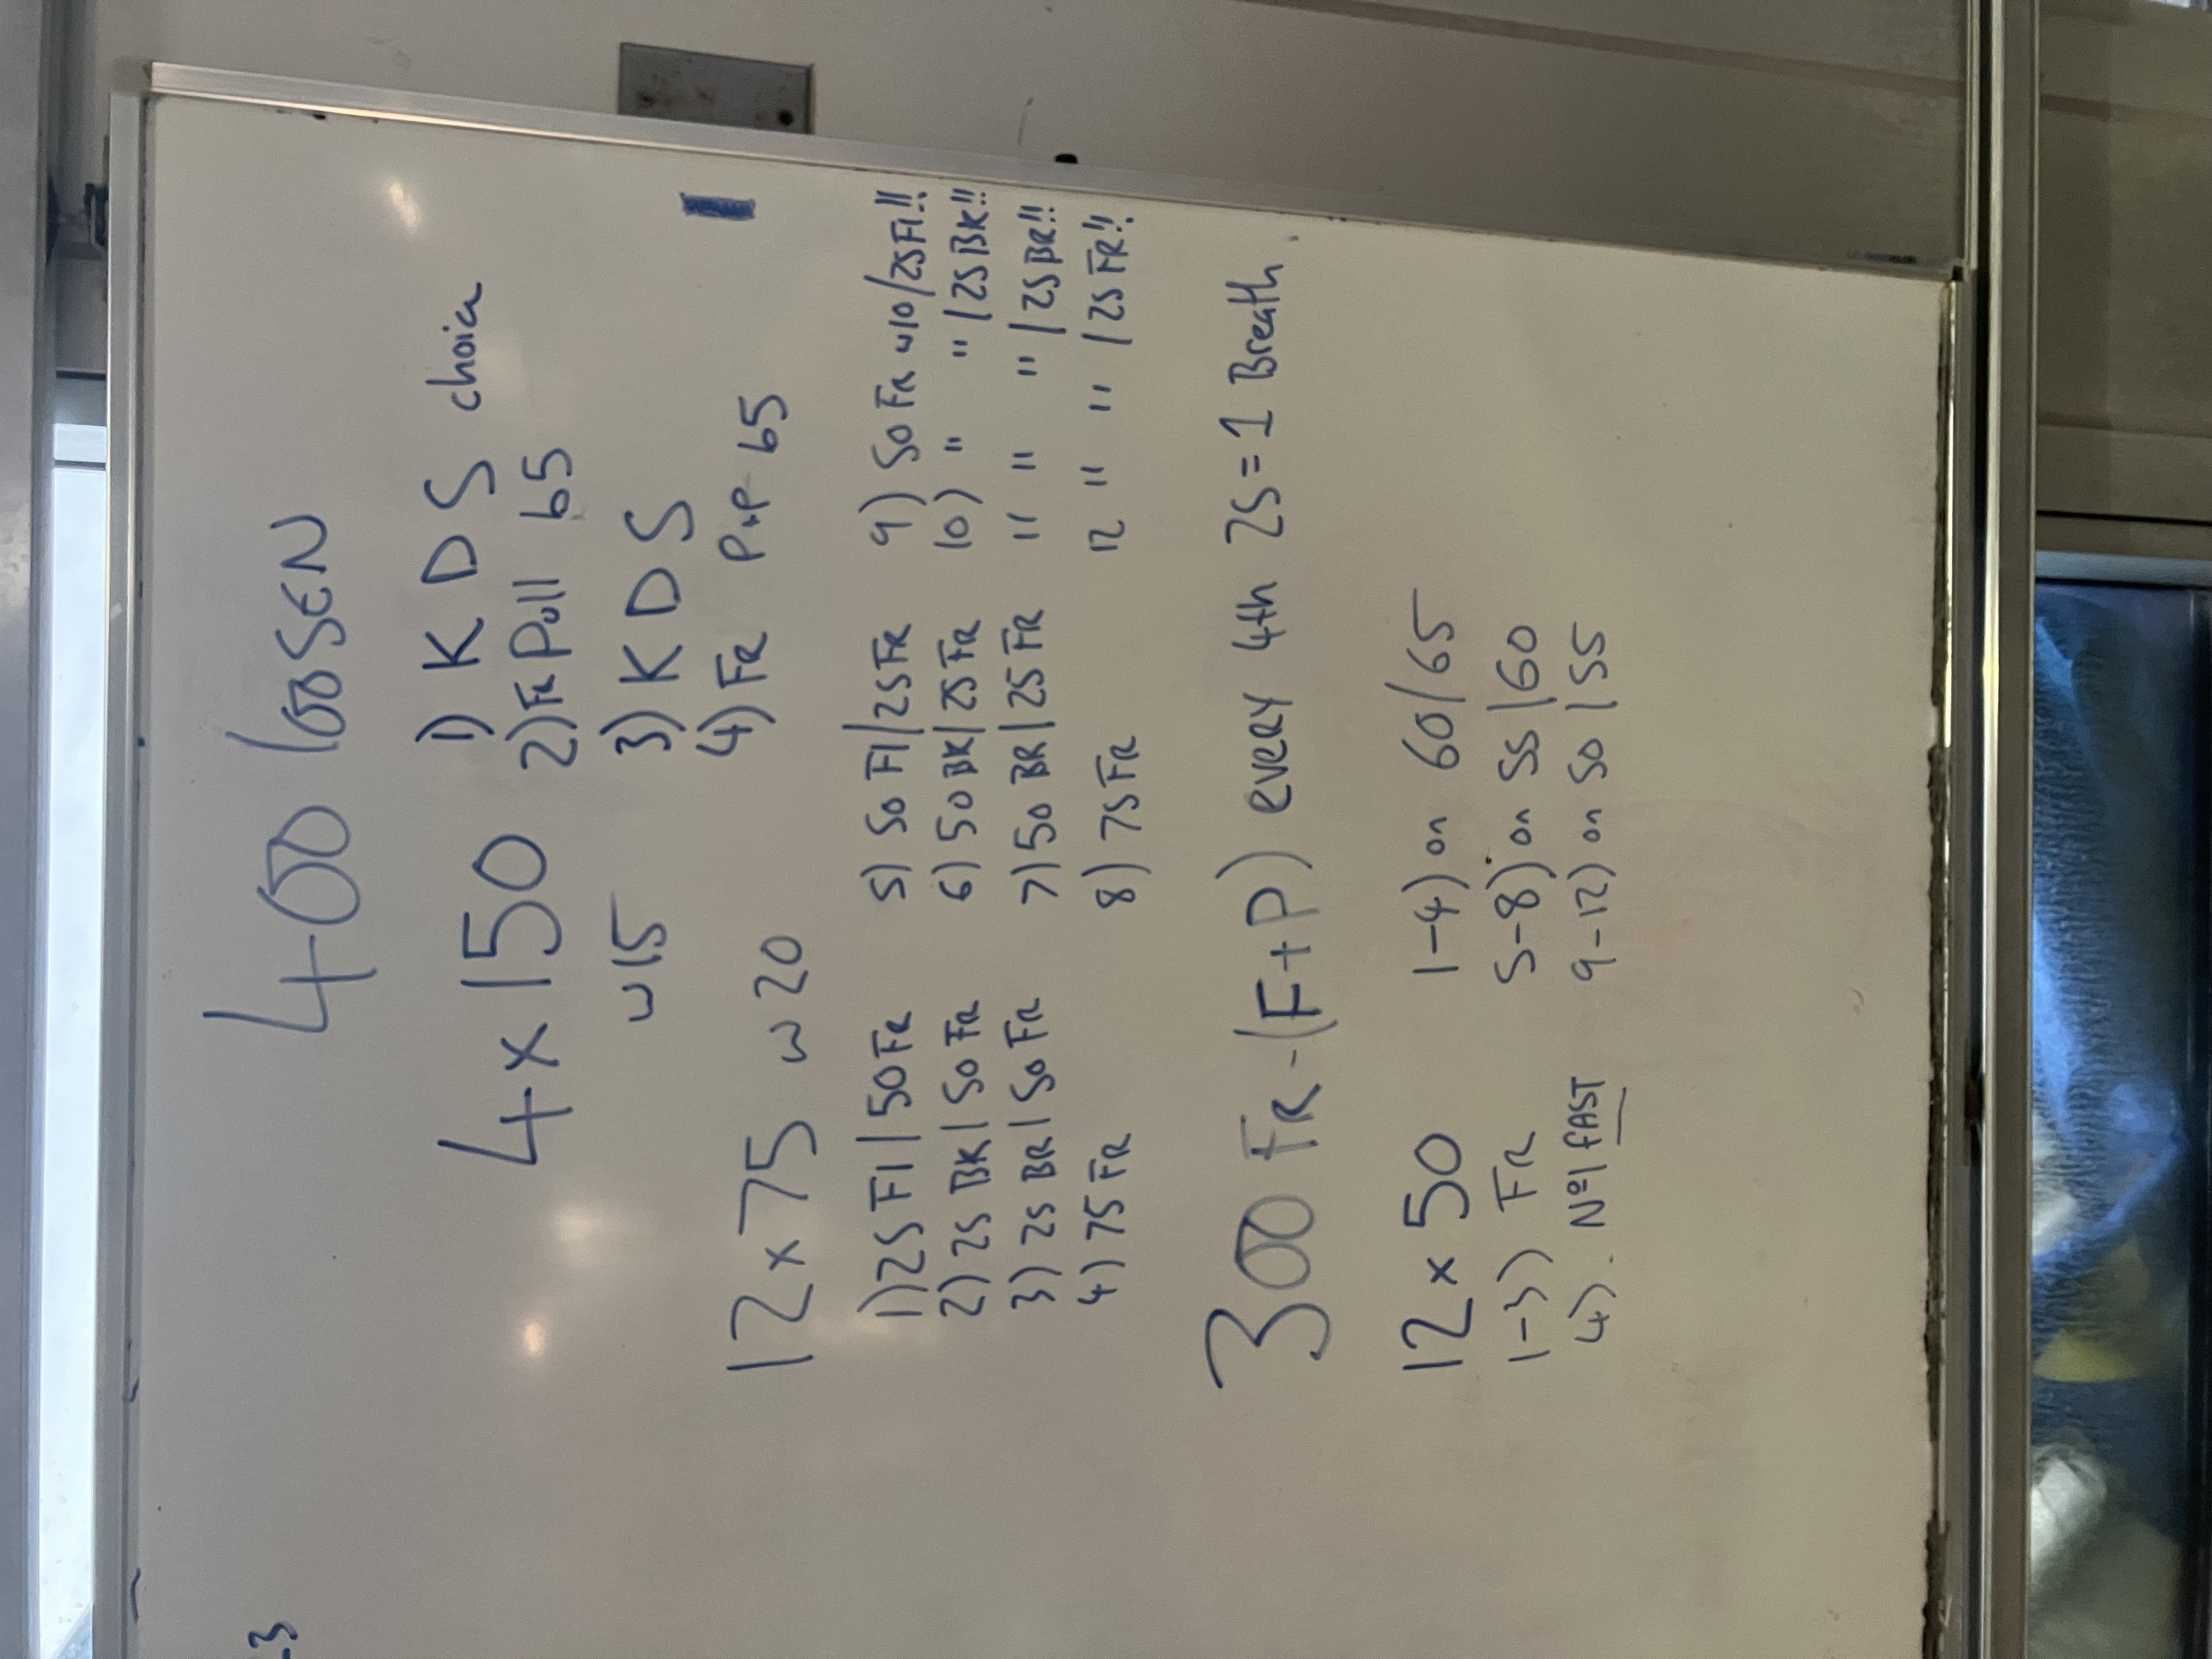 400 loosEN
4x150 1) K D S choice
2) FR Pull 65
w15 3) K D S
4) FR P+P 65
12 x 75 w 20
1) 25 Fl | 50 FR 5) 50 Fl / 25 FR 9) 50 FR w/o / 25 Fl!!
2) 25 BK | 50 FR 6) 50 BK | 25 FR 10) " " | 25 BK!!
3) 25 BR | 50 FR 7) 50 BR | 25 FR 11 " " | 25 BR!!
4) 75 FR 8) 75 FR 12 " " | 25 FR!!
300 FR - (F+P) every 4th 25 = 1 Breath.
12 x 50 1-4) on 60/65
1-3) FR 5-8) on 55 | 60
4). Nº1 FAST 9-12) on 50 | 55
-3